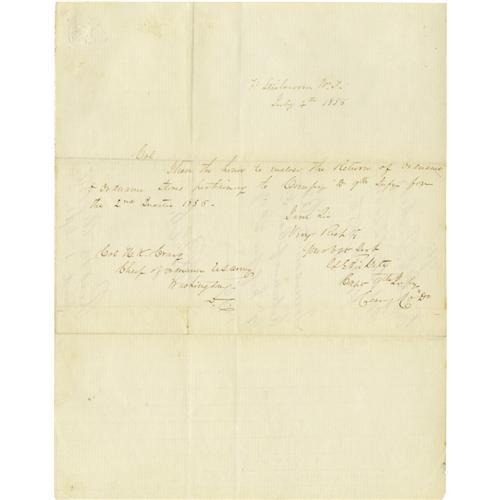 Ft Steilacoom W.T.
July 4th 1856
Col
I have the honor to enclose the Return of Ordnance
& Ordnance Stores pertaining to Company D 9th Infy for
the 2nd Quarter 1856.
I am Sir
Very Resp'y
Your Obt Servt
G E Pickett
Capt 9th Infy
Comg Co D
Col H K Craig
Chief of Ordnance U.S. Army
Washington
D.C.